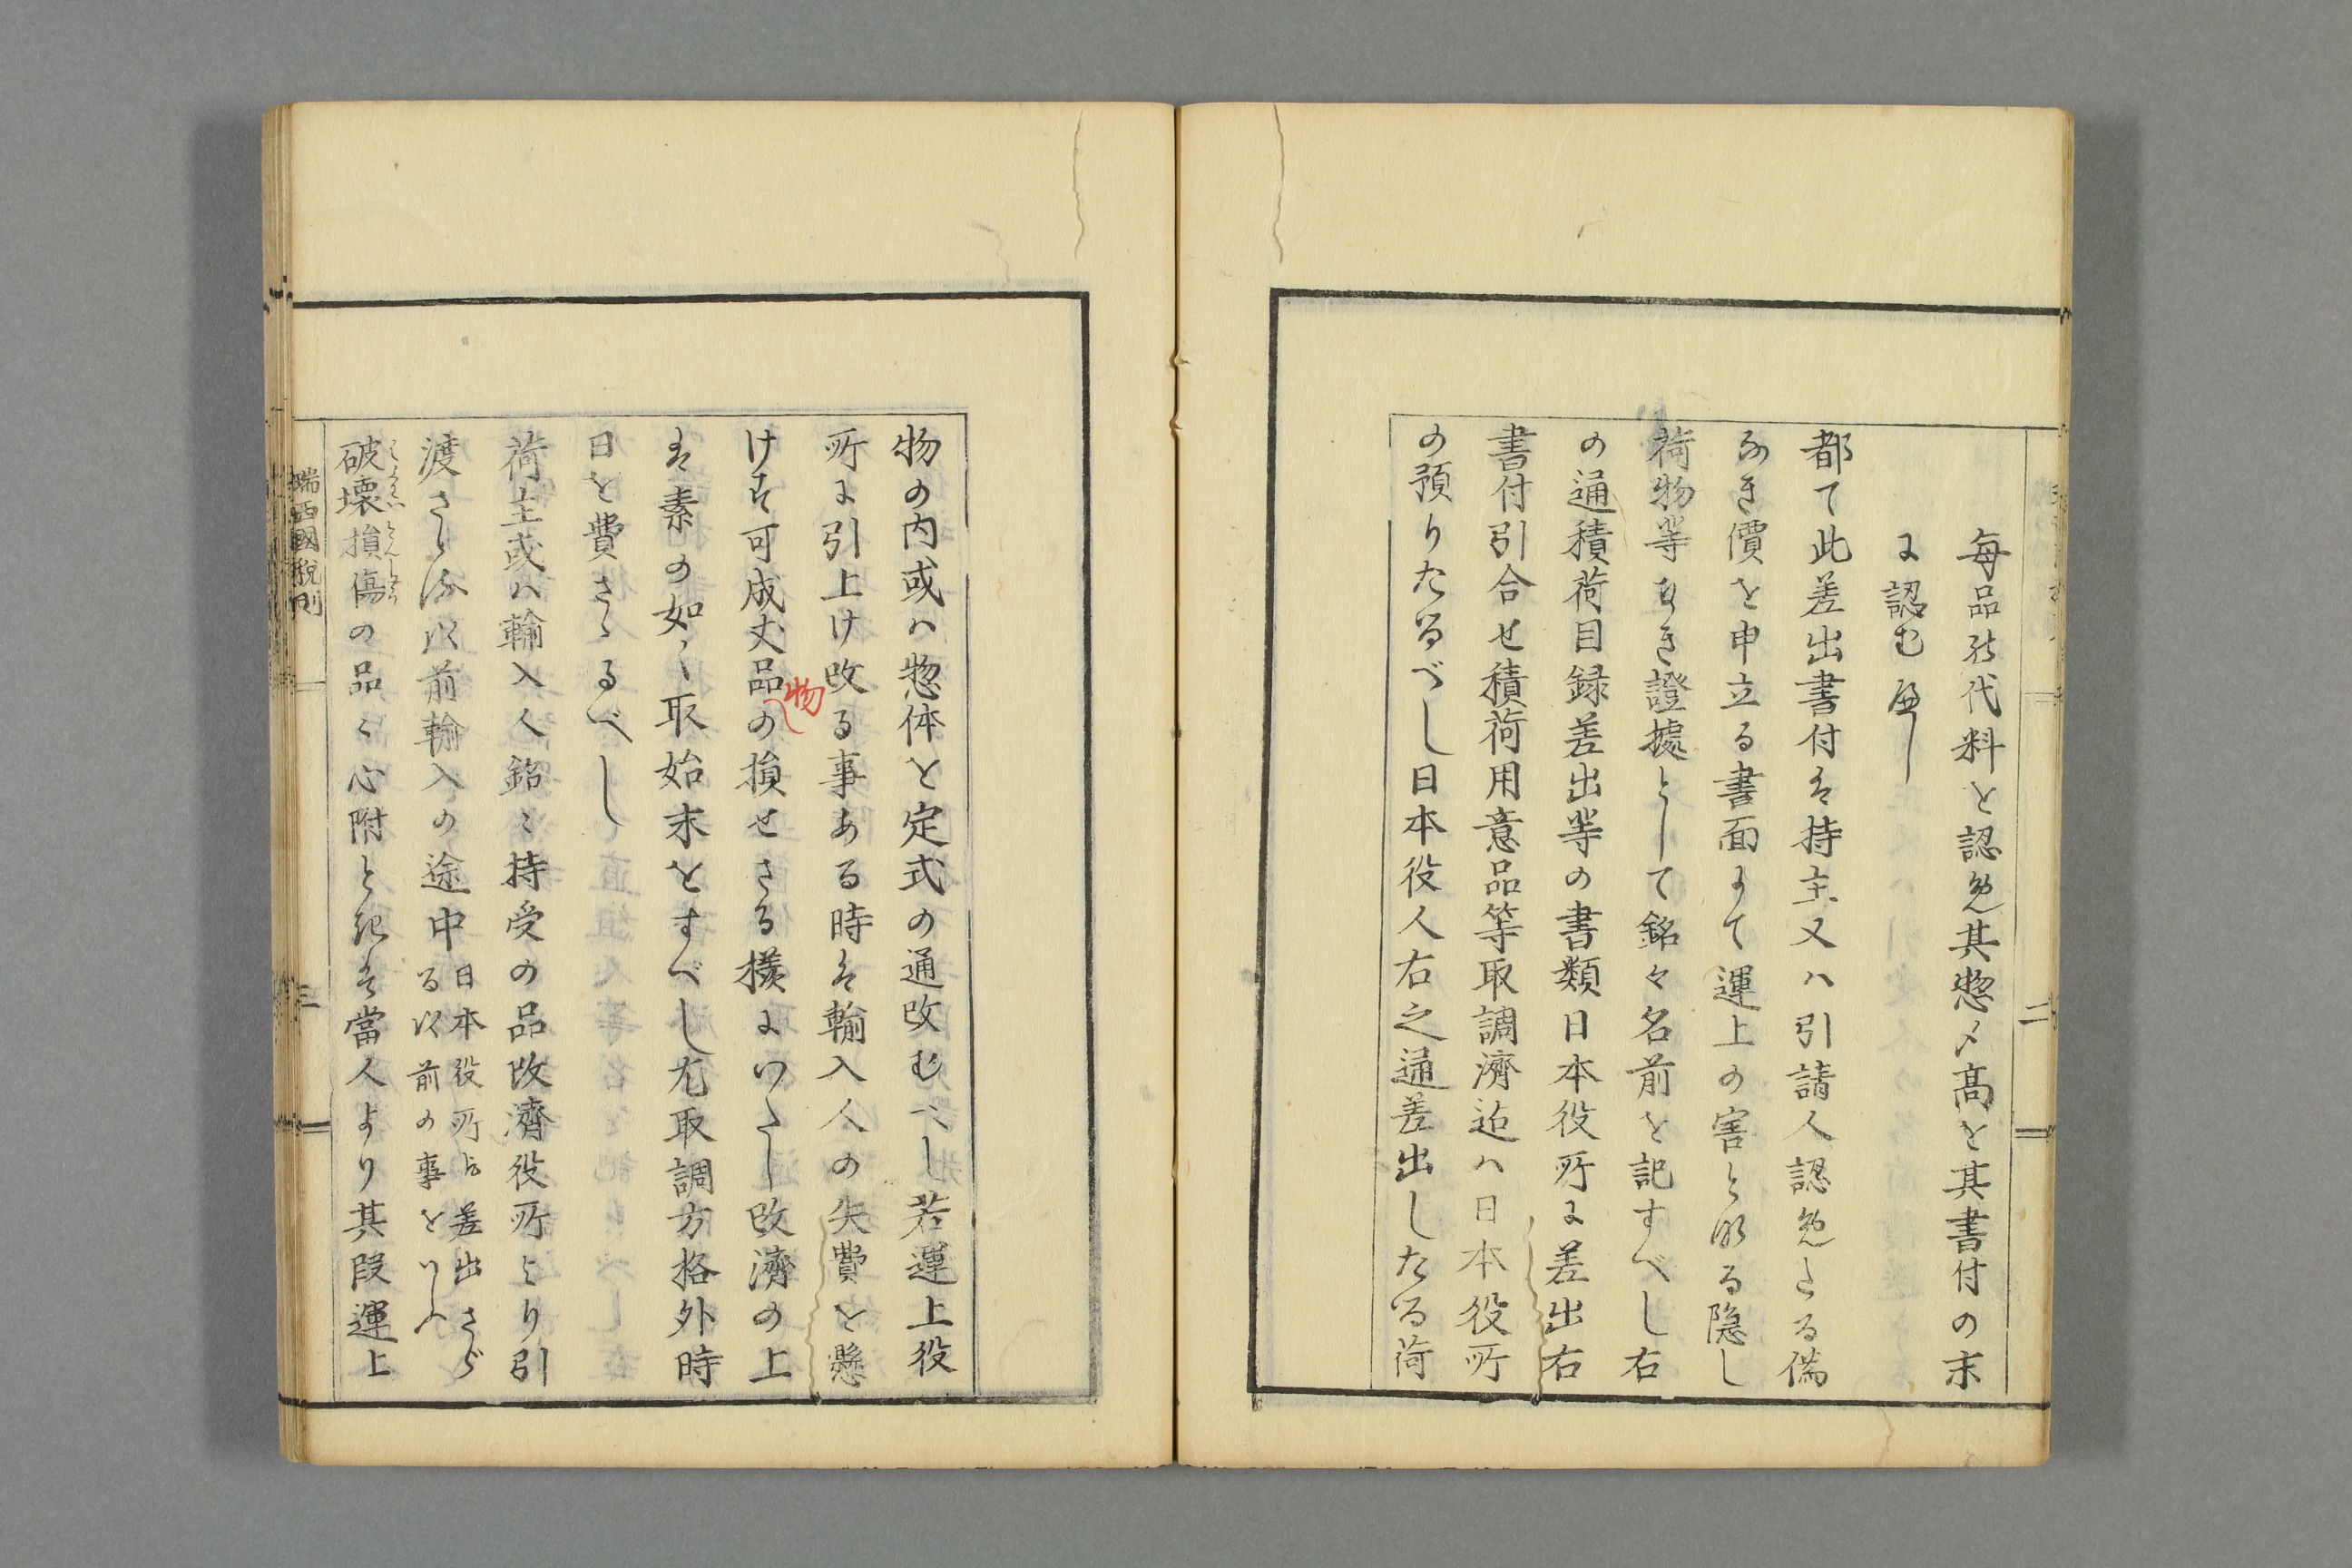 毎品の代料を認め其惣〆高を其書付の末
に認む可し
都て此差出書付は持主又ハ引請人認めたる偽
なき價を申立る書面にて運上の害と成る隠し
荷物等なき證據として銘々名前を記すべし右
の通積荷目録差出等の書類日本役所に差出右
書付引合せ積荷用意品等取調濟迄ハ日本役所
の預りたるべし日本役人右之通差出したる荷
二
物の内或ハ惣体を定式の通改むべし若運上役
所に引上け改る事ある時は輸入人の失費を懸
けす可成丈品の損せさる様にいたし改濟の上
物
は素の如く取始末をすべし尤取調方格外時
日を費さゝるべし
荷主或ハ輸入人銘々持受の品改濟役所より引
渡さゝる以前輸入の途中日本役所ゟ差出さゞ
る以前の事をいふ
破壊損傷の品に心附と起は當人より其段運上
はくわい そんしやう
瑞西國税則
三